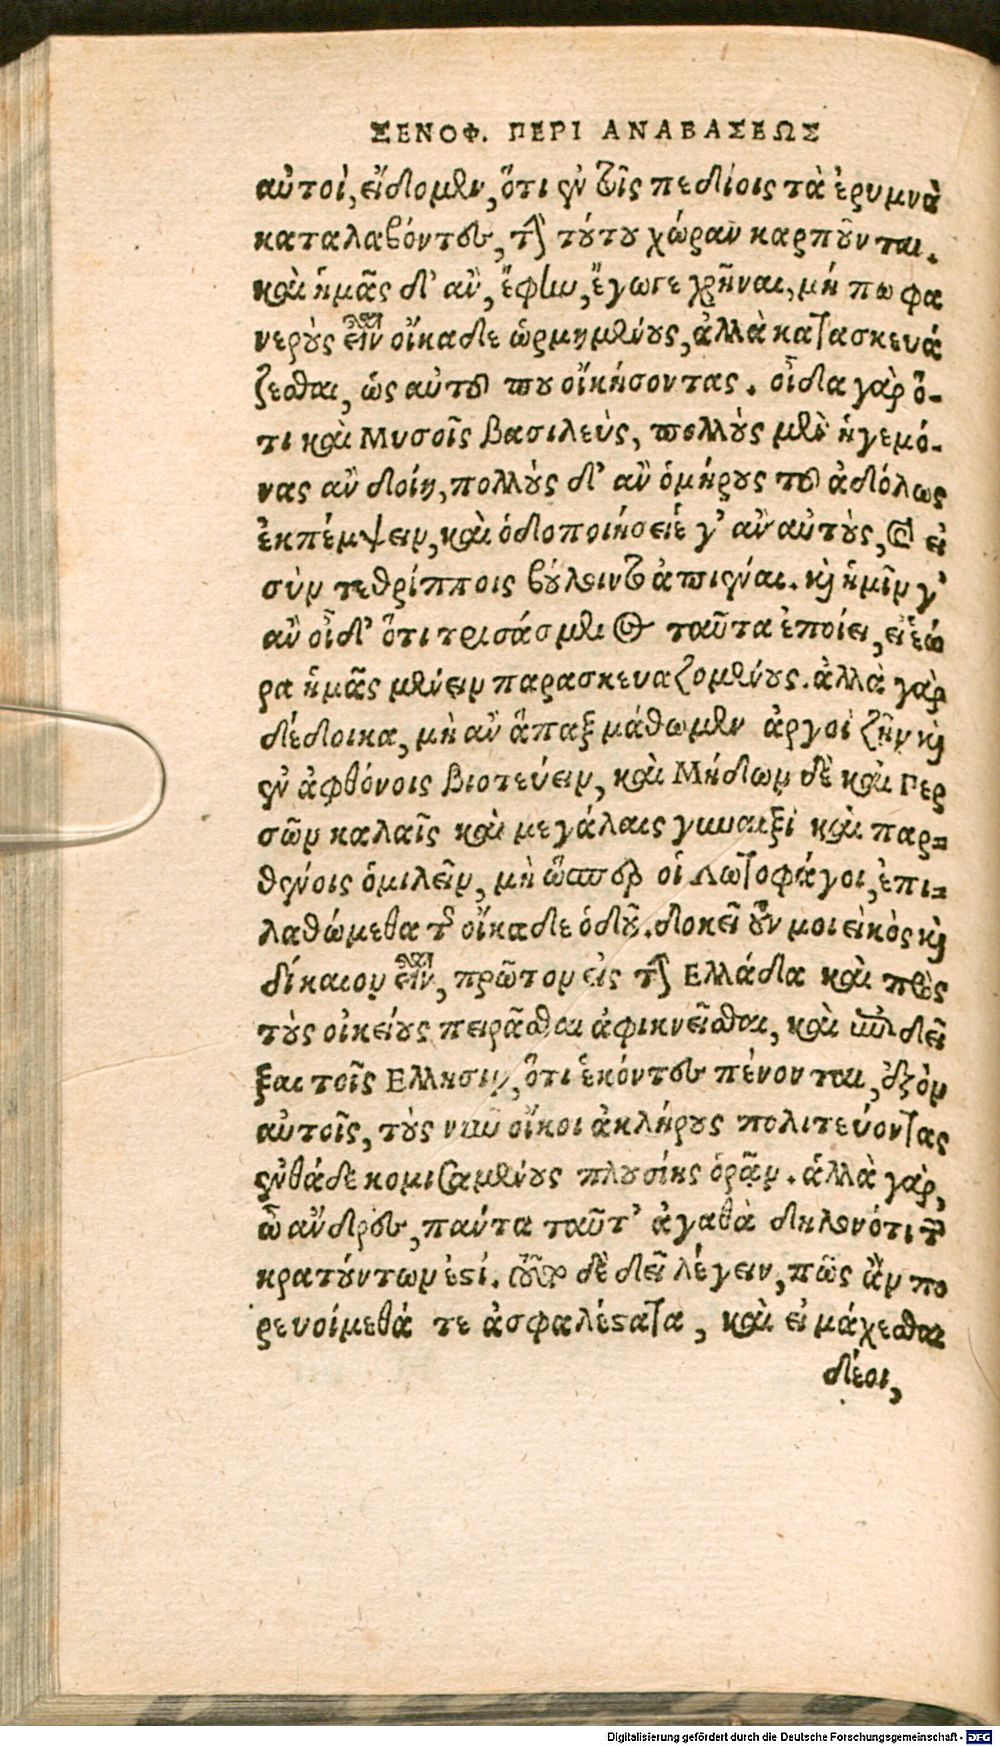 ΞΕΝΟΦ. ΠΕΡΙ ΑΝΑΒΑΣΕΩΣ
αὐτοὶ, εἴδομεν, ὅτι ἐν τοῖς πεδίοις τὰ ἐρυμνὰ
καταλαβόντες, τὴν τούτου χώραν καρποῦνται.
καὶ ἡμᾶς δ' ἂν, ἔφην, ἔγωγε χρῆναι, μή πω φα
νεροὺς εἶναι οἴκαδε ὡρμημένους, ἀλλὰ κατασκευά
ζεσθαι, ὡς αὐτοῦ που οἰκήσοντας. οἶδα γὰρ ὅ-
τι καὶ Μυσοῖς βασιλεὺς, πολλοὺς μὲν ἡγεμό-
νας ἂν δοίη, πολλοὺς δ' ἂν ὁμήρους τοῦ ἀδόλως
ἐκπέμψειν, καὶ ὁδοποιήσειέ γ' ἂν αὐτοὺς, καὶ εἰ
σὺν τεθρίπποις βούλοιντο ἀπιέναι. καὶ ἡμῖν γ'
ἂν οἶδ' ὅτι τρισάσμενος ταῦτα ἐποίει, εἰ ἑώ
ρα ἡμᾶς μένειν παρασκευαζομένους. ἀλλὰ γὰρ
δέδοικα, μὴ ἂν ἅπαξ μάθωμεν ἀργοὶ ζῆν καὶ
ἐν ἀφθόνοις βιοτεύειν, καὶ Μήδων δὲ καὶ Περ
σῶν καλαῖς καὶ μεγάλαις γυναιξὶ καὶ παρ-
θένοις ὁμιλεῖν, μὴ ὥσπερ οἱ Λωτοφάγοι, ἐπι-
λαθώμεθα τῆς οἴκαδε ὁδοῦ. δοκεῖ οὖν μοι εἰκὸς καὶ
δίκαιον εἶναι, πρῶτον εἰς τὴν Ελλάδα καὶ πρὸς
τοὺς οἰκείους πειρᾶσθαι ἀφικνεῖσθαι, καὶ ἐπιδεῖ
ξαι τοῖς Ελλησιν, ὅτι ἑκόντες πένονται, ἐξὸν
αὐτοῖς, τοὺς νῦν οἴκοι ἀκλήρους πολιτεύοντας
ἐνθάδε κομισαμένους πλουσίους ὁρᾷν. ἀλλὰ γὰρ,
ὦ ἄνδρες, πάντα ταῦτ' ἀγαθὰ δηλονότι τῶν
κρατούντων ἐστί. τοῦτο δὲ δεῖ λέγειν, πῶς ἂν πο
ρευοίμεθά τε ἀσφαλέστατα, καὶ εἰ μάχεσθαι
δέοι,
Digitalisierung gefördert durch die Deutsche Forschungsgemeinschaft - DFG